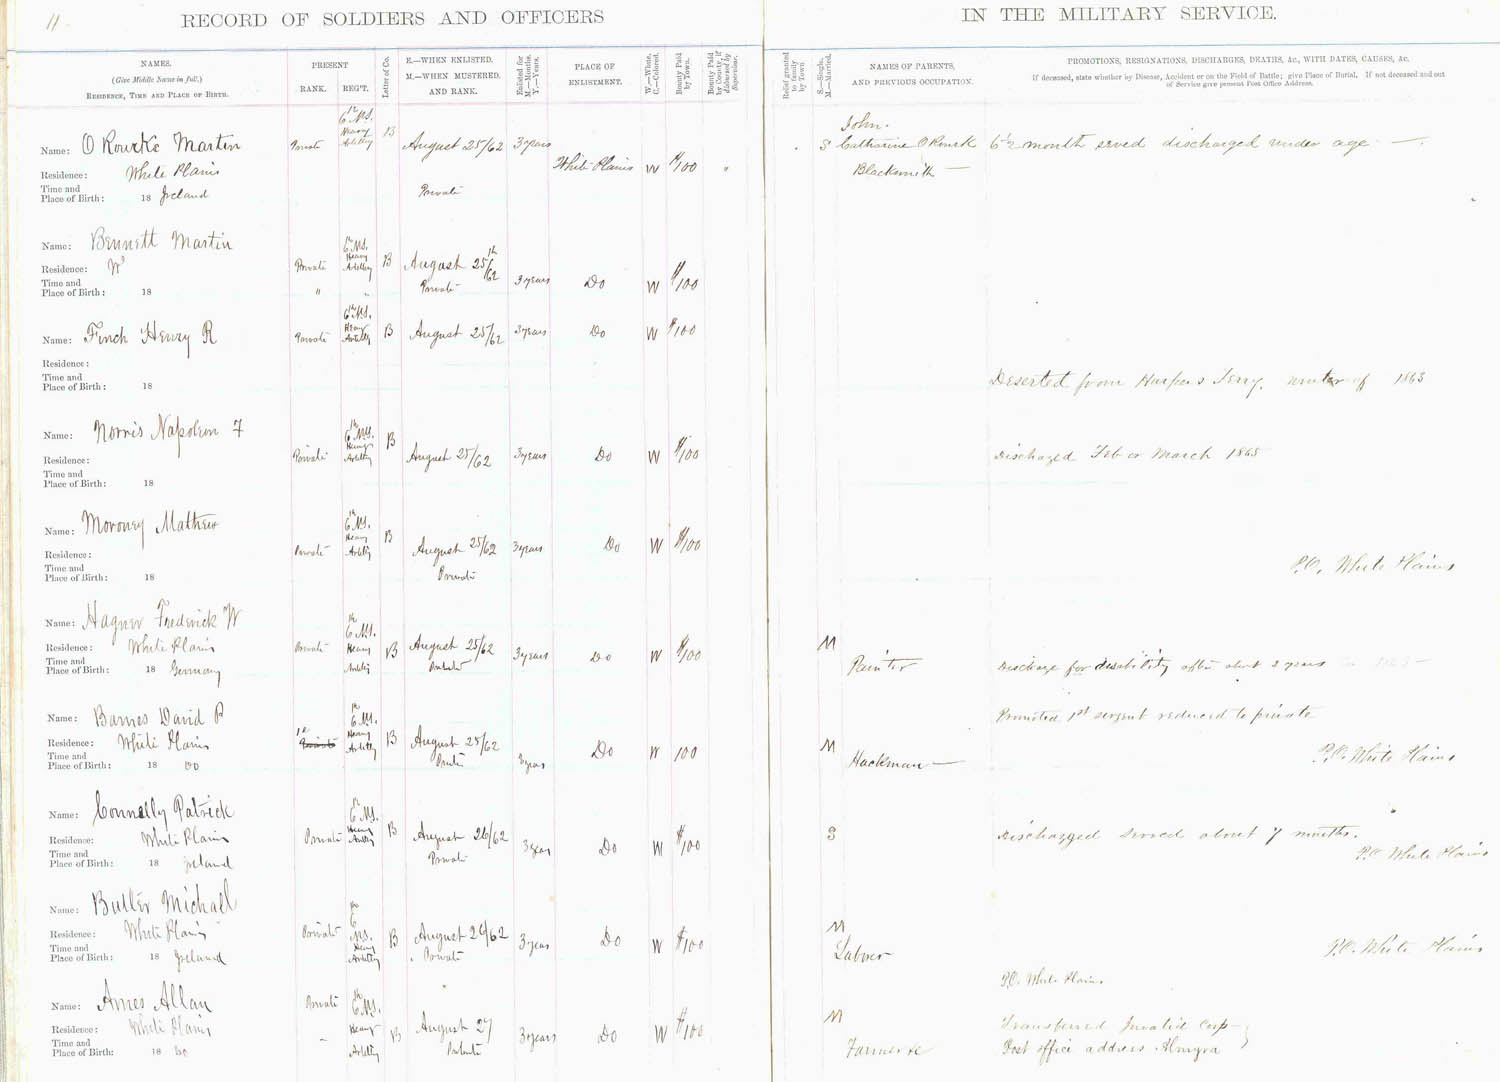 11
RECORD OF SOLDIERS AND OFFICERS IN THE MILITARY SERVICE.
NAMES.
(Give Middle Name in full.)
RESIDENCE, TIME AND PLACE OF BIRTH.
PRESENT
RANK. REG'T.
Letter of Co.
E.—WHEN ENLISTED.
M.—WHEN MUSTERED.
AND RANK.
Enlisted for
M.—Months.
Y.—Years.
PLACE OF
ENLISTMENT.
W.—White.
C.—Colored.
Bounty Paid
by Town.
Bounty Paid
by County, if
disbursed by
Supervisor.
Relief granted
to family
by Town
S.—Single.
M.—Married.
NAMES OF PARENTS,
AND PREVIOUS OCCUPATION.
PROMOTIONS, RESIGNATIONS, DISCHARGES, DEATHS, &c., WITH DATES, CAUSES, &c.
If deceased, state whether by Disease, Accident or on the Field of Battle; give Place of Burial. If not deceased and out
of Service give present Post Office Address.
Name: O Rourke Martin Private 6th N.Y. Heavy Artillery B August 25/62 3 years S John. Catharine O Rourk 6½ month served discharged under age —
Residence: White Plains White Plains W $100 " Blacksmith —
Time and
Place of Birth: 18 Ireland Private
Name: Bennett Martin
Residence: W Private 6th N.Y. Heavy Artillery B August 25th/62 3 years Do W $100
Time and
Place of Birth: 18 " " Private
Name: Finch Henry R Private 6th N.Y. Heavy Artilly B August 25/62 3 years Do W $100
Residence:
Time and
Place of Birth: 18 Deserted from Harpers Ferry, winter of 1863
Name: Norris Napoleon F
Residence: Private 6th N.Y. Heavy Artilly B August 25/62 3 years Do W $100 Discharged Feb or March 1865
Time and
Place of Birth: 18
Name: Moroney Mathew
Residence: Private 6th N.Y. Heavy Artilly B August 25/62 3 years Do W $100
Time and
Place of Birth: 18 Private P.O. White Plains
Name: Hagner Frederick W
Residence: White Plains Private 6th N.Y. Heavy Artily B August 25/62 3 years Do W $100 M
Time and
Place of Birth: 18 Germany Private Painter Discharge for disability after about 2 years
Name: Barnes David P Promoted 1st sergent reduced to private
Residence: White Plains 1st Private 6th N.Y. Heavy Artilly B August 25/62 3 years Do W 100 M
Time and
Place of Birth: 18 Do Private Hackman — P.O. White Plains
Name: Connelly Patrick
Residence: White Plains Private 6th N.Y. Heavy Artilly B August 26/62 3 years Do W $100 S Discharged served about 7 months.
Time and
Place of Birth: 18 Ireland Private P.O. White Plains
Name: Butler Michael
Residence: White Plains Private 6 N.Y. Heavy Artilly B August 26/62 3 years Do W $100 M
Time and
Place of Birth: 18 Ireland Private Laborer P.O. White Plains
P.O. White Plains
Name: Ames Allan Private 6th N.Y.
Residence: White Plains " Heavy Artilly B August 27 3 years Do W $100 M Transferred Invalid Corp—
Time and
Place of Birth: 18 Do Private Farmer &c Post office address